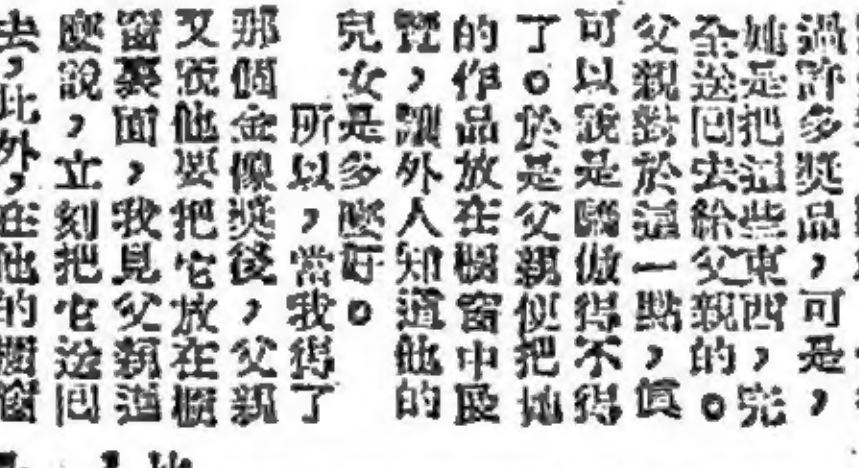 過許多獎品,可是,
她是把這些東西,完
全送回去給父親的。
父親對於這一點,真
可以說是驕傲得不得
了。於是父親便把她
的作品放在櫥窗中展
覽,讓外人知道他的
兒女是多麼好。
所以,當我得了
那個金像獎後,父親
又說他要把它放在櫥
窗裏面,我見父親這
麼說,立刻把它送回
去,此外,在他的櫥窗